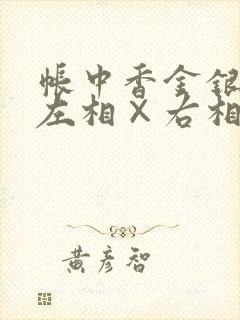 帳中香金銀
左相×右相
黃彥智